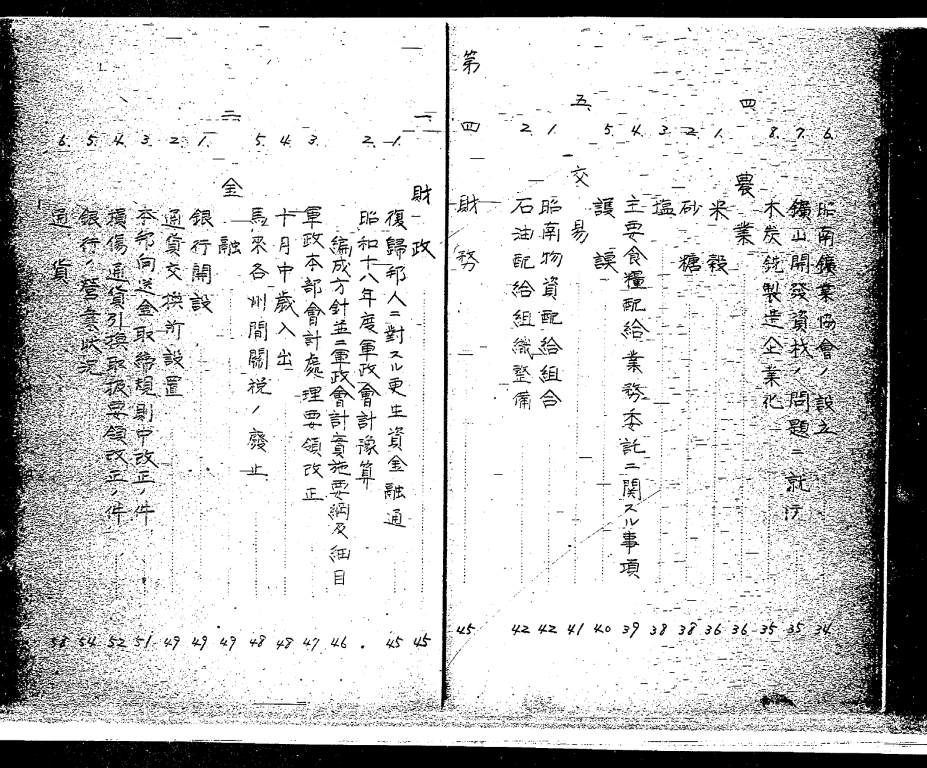 6. 昭南鑛業協會ノ設立 34
7. 鑛山開發資材ノ問題ニ就テ 35
8. 木炭銑製造企業化 35
四 農業 36
1. 米穀 36
2. 砂糖 38
3. 塩 38
4. 主要食糧配給業務委託ニ関スル事項 39
5. 護謨 40
五 交易 41
1. 昭南物資配給組合 42
2. 石油配給組織整備 42
第四 財務 45
一 財政 45
1. 復歸邦人ニ對スル更生資金融通 45
2. 昭和十八年度軍政會計豫算
編成方針並ニ軍政會計實施要綱及細目 46
3. 軍政本部會計處理要領改正 47
4. 十月中歲入出 48
5. 馬來各州間關稅ノ廢止 48
二 金融 49
1. 銀行開設 49
2. 通貨交換所設置 49
3. 本邦向送金取締規則中改正ノ件 51
4. 損傷通貨引換取扱要領改正ノ件 52
5. 銀行ノ營業狀況 54
6. 通貨 58